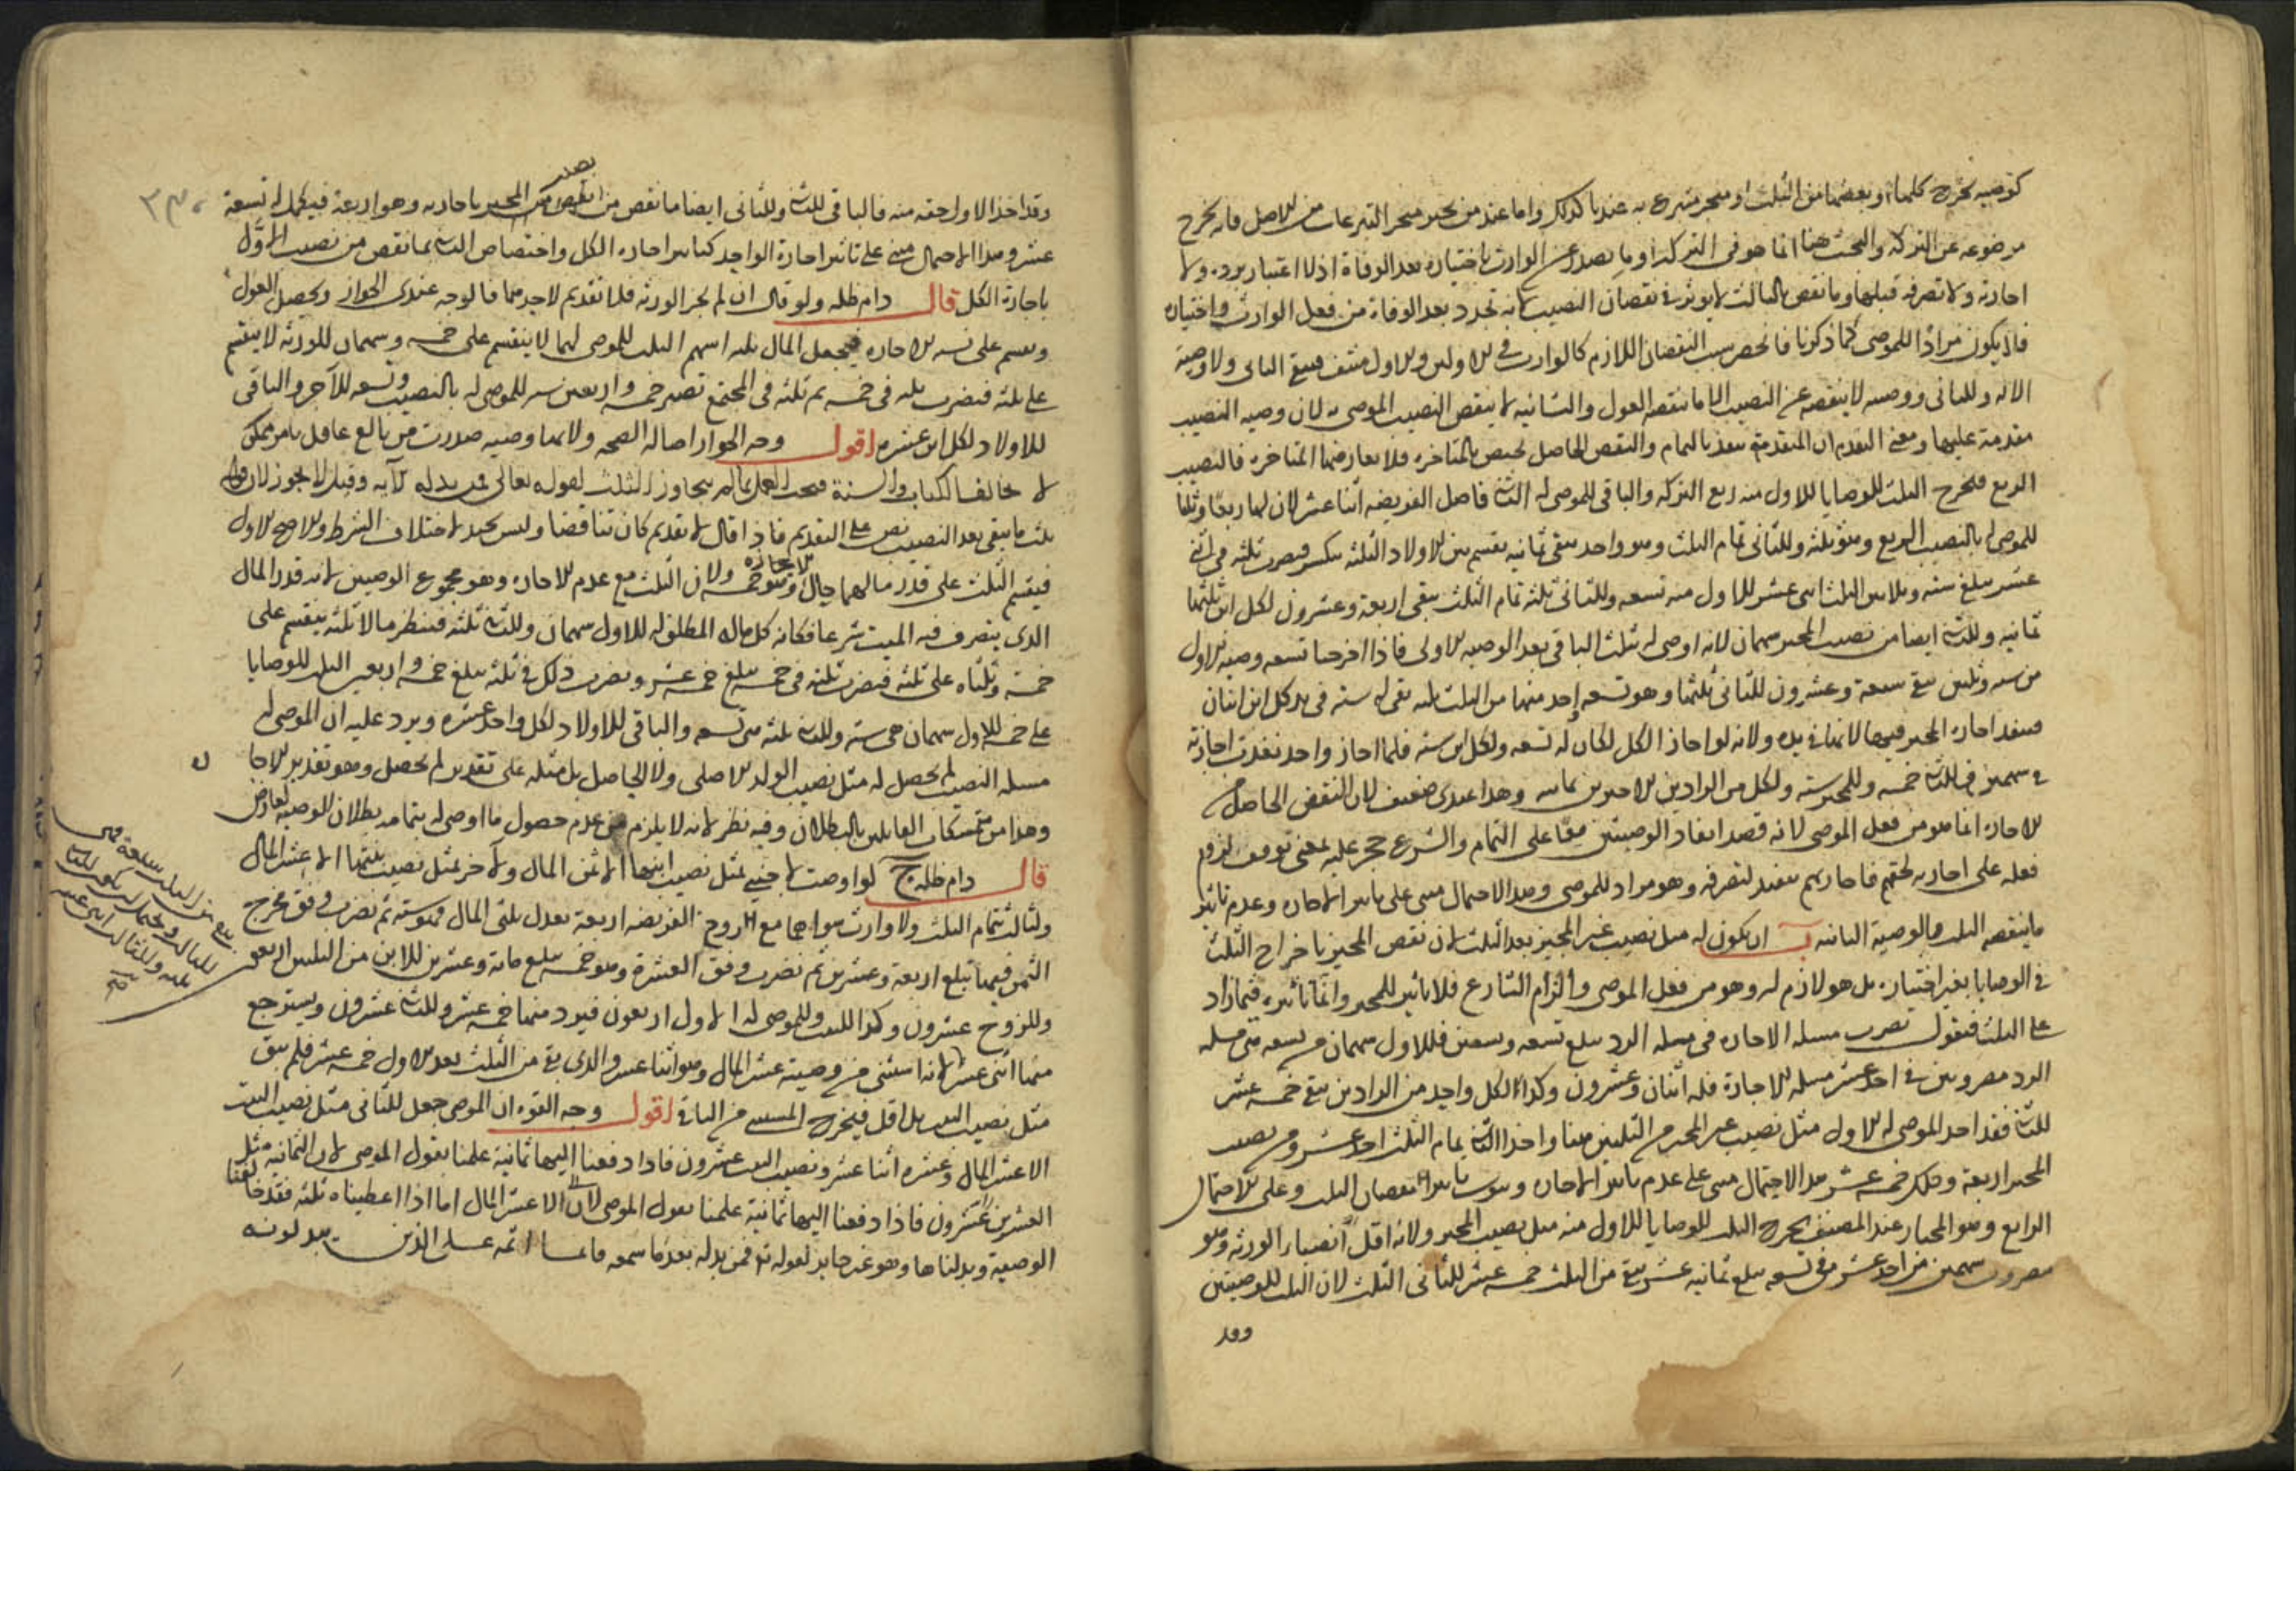 كوصيه تخرج كلها او بعضها من الثلث او منجز متبرع به عندنا كذلك واما عند من يخير منجز التبرعات من الاصل فانه يخرج
موضوعه عن التركه والبحث هنا انما هو فى التركه او ما يصدر عن الوارث باختياره بعد الوفاة اذ لا اعتبار برده ولا
اجازته ولا تصرفه قبلها وما نقص بالثالث لا يوثر فى نقصان النصيب لانه تجدد بعد الوفاة من فعل الوارث واختياره
فلا يكون مرادا للموصى كما ذكرنا فانحصر سبب النقصان اللازم كالوارث فى الاولين والاول منتف فيبقى الثانى ولا وصية
الا له وللثانى ووصيته لا ينقصه عن النصيب الا ما نقصه العول والثانيه لا ينقص النصيب الموصى به لان وصيه النصيب
مقدمة عليها ومعنى التقدم ان المتقدمة ينفذ بالتمام والنقص الحاصل يختص بالمتاخره فلا يعارضها المتاخره فالنصيب
الربع فيخرج الثلث للوصايا للاول منه ربع التركه والباقى للموصى له الثانى فاصل الفريضه اثنا عشر لان لها ربعا وثلثا
للموصى له بالنصيب الربع وهو ثلثه وللثانى تمام الثلث وهو واحد يبقى ثمانيه يقسم بين الاولاد الثلثه ينكسر فيضرب ثلثه فى اثنى
عشر يبلغ سته وثلاثين الثلث اثنى عشر للاول منه تسعه وللثانى ثلثه تمام الثلث يبقى اربعة وعشرون لكل ابن ثلثها
ثمانيه وللثانى ايضا من نصيب المجيز سهمان لانه اوصى له بثلث الباقى بعد الوصيه الاولى فاذا اخرجنا تسعه وصيه الاول
من سته وثلثين يبقى سبعة وعشرون للثانى ثلثها وهو تسعه اخذ منها من الثلث ثلثه بقى له سته فى يد كل ابن اثنان
فينفذ اجازه المجيز فيهما لانهما فى يده ولانه لو اجاز الكل لكان له تسعه ولكل ابن سته فلما اجاز واحد نفذت اجازته
فى سهمين فللثانى خمسه وللمجيز سته ولكل من الرادين الاخرين ثمانيه وهذا عندى ضعيف لان النقص الحاصل من
الاجازه انما هو من فعل الموصى لانه قصد انفاذ الوصيتين معا على التمام والشرع حجر عليه بمعنى توقف لزوم
فعله على اجازتهم فاجازتهم تنفيذ لتصرفه وهو مراد للموصى وهذا الاحتمال مبنى على تاثير الاجازه وعدم تاثير
ما ينقصه الثلث والوصية الثانيه ب ان يكون له مثل نصيب غير المجيز بعد الثلث لان نقص المجيز باخراج الثلث
فى الوصايا بغير اختياره بل هو لازم له وهو من فعل الموصى والزام الشارع فلا تاثير للمجيز وانما تاثيره فيما زاد
على الثلث فنقول تضرب مسئله الاجازه فى مسئله الرد يبلغ تسعه وتسعين فللاول سهمان من تسعه هى مسئله
الرد مضروبين فى احد عشر مسئله الاجازة فله اثنان وعشرون وكذا لكل واحد من الرادين يبقى خمسه عشر
للثانى فقد اخذ الموصى له الاول مثل نصيب غير المجيز من الثلثين هنا واخذ الثانى تمام الثلث احد عشر ومن نصيب
المجيز اربعة وذلك خمسه عشر هذا الاحتمال مبنى على عدم تاثير الاجازه وثبوت تاثير نقصان الثلث وعلى الاحتمال
الرابع وهو المختار عند المصنف يخرج الثلث للوصايا للاول منه مثل نصيب المجيز ولانه اقل انصباء الورثه وهو
مضروب سهمين من احد عشر فى تسعه يبلغ ثمانيه عشر يبقى من الثلث خمسه عشر للثانى الثلث لان الثلث للوصيتين
وقد
وقد اخذ الاول حقه منه فالباقى للثانى وللثانى ايضا ما نقص من نصيب المجيز باجازته وهو اربعة فيكمل له تسعة
عشر وهذا الاحتمال مبنى على تاثير اجازة الواحد كتاثير اجازه الكل واختصاص الثانى بما نقص من نصيب الاول
باجازة الكل قال دام ظله ولو قال ان لم يجز الورثه فلا تقديم لاحدهما فالوجه عندى الجواز ويحصل العول
ويقسم على نسبه الاجازه فيجعل المال ثلثه اسهم الثلث للموصى لهما لا ينقسم على خمسه وسهمان للورثه لا ينقسم
على ثلثه فيضرب ثلثه فى خمسه ثم ثلثه فى المجتمع تصير خمسه واربعين سته للموصى له بالنصيب وتسعه للاخر والباقى
للاولاد لكل ابن عشره اقول وجه الجواز اصاله الصحه ولانها وصيه صدرت من بالغ عاقل بامر ممكن
لا يخالف الكتاب والسنة فيجب العمل بها ما لم يتجاوز الثلث لقوله تعالى فمن بدله الآيه وقيل لا يجوز لان قوله
ثلث ما يبقى بعد النصيب نص على التقديم فاذا قال لا تقديم كان تناقضا وليس بجيد لاختلاف الشرط والاصح الاول
فيقسم الثلث على قدر مالهما حال الاجازه وهو خمسه ولان الثلث مع عدم الاجازه وهو مجموع الوصيتين لانه قدر المال
الذى يتصرف فيه الميت شرعا فكانه كل ماله المطلق له للاول سهمان وللثانى ثلثه فينظر مالا ثلثه ينقسم على
خمسة وثلثاه على ثلثه فيضرب ثلثه فى خمسه يبلغ خمسه عشر ويضرب ذلك فى ثلثه يبلغ خمسه واربعين الثلث للوصايا
على خمسه للاول سهمان هى سته وللثانى ثلثه هى تسعه والباقى للاولاد لكل واحد عشره ويرد عليه ان الموصى له
مسئله النصيب لم يحصل له مثل نصيب الولد الاصلى ولا الحاصل بل مثله على تقدير لم يحصل وهو تقدير الاجازه
وهذا من تمسكات القايلين بالبطلان وفيه نظر لانه لا يلزم من عدم حصول ما اوصى له بتمامه بطلان الوصيه لعارض
قال دام ظله ج لو اوصت لاجنبى بمثل نصيب ابنها الا ثمن المال ولآخر بمثل نصيب بنتها الا عشر المال
ولثالث بتمام الثلث ولا وارث سواهما مع الزوج الفريضه اربعة يعدل ثلثى المال فهو سته ثم نضرب وفق مخرج
الثمن فيها تبلغ اربعة وعشرين ثم نضرب وفق العشرة وهو خمسه يبلغ مائة وعشرين للابن من الثلثين اربعون
وللزوج عشرون وكذا للبنت وللموصى له الاول اربعون فيرد منها خمسه عشر وللثانى عشرون ويسترجع
منها اثنى عشر لانه استثنى من وصيته عشر المال وهو اثنا عشر والذى بقى من الثلث بعد الاول خمسه عشر فلم يبق
مثل نصيب البنت بل اقل فيخرج المستثنى من الباقى اقول وجه القوه ان الموصى جعل للثانى مثل نصيب البنت
الا عشر المال وعشره اثنا عشر ونصيب البنت عشرون فاذا دفعنا اليها ثمانية علمنا بقول الموصى لان الثمانيه مثل
العشرين عشرون فاذا دفعنا اليها ثمانية علمنا بقول الموصى لان الا عشر المال اما اذا اعطيناه ثلثه فقد خالفنا
الوصية وبدلناها وهو غير جايز لقوله تع فمن بدله بعد ما سمعه فانما اثمه على الذين يبدلونه